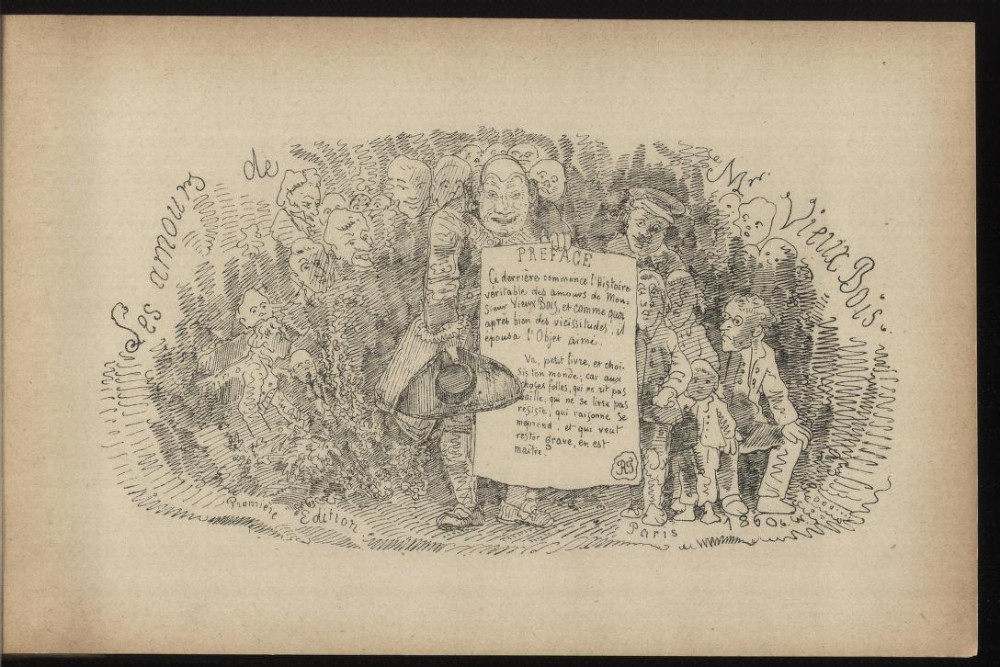 Les amours de Mr. Vieux Bois.
PREFACE
Ci derrière commence l'Histoire
véritable des amours de Mon-
sieur Vieux Bois, et comme quoi
après bien des vicissitudes, il
épousa l'Objet aimé.
Va, petit livre, et choi-
sis ton monde; car aux
choses folles, qui ne rit pas
baille; qui ne se livre pas
résiste; qui raisonne se
méprend; et qui veut
rester grave, en est
maître.
RT
Première Edition
Paris
1860